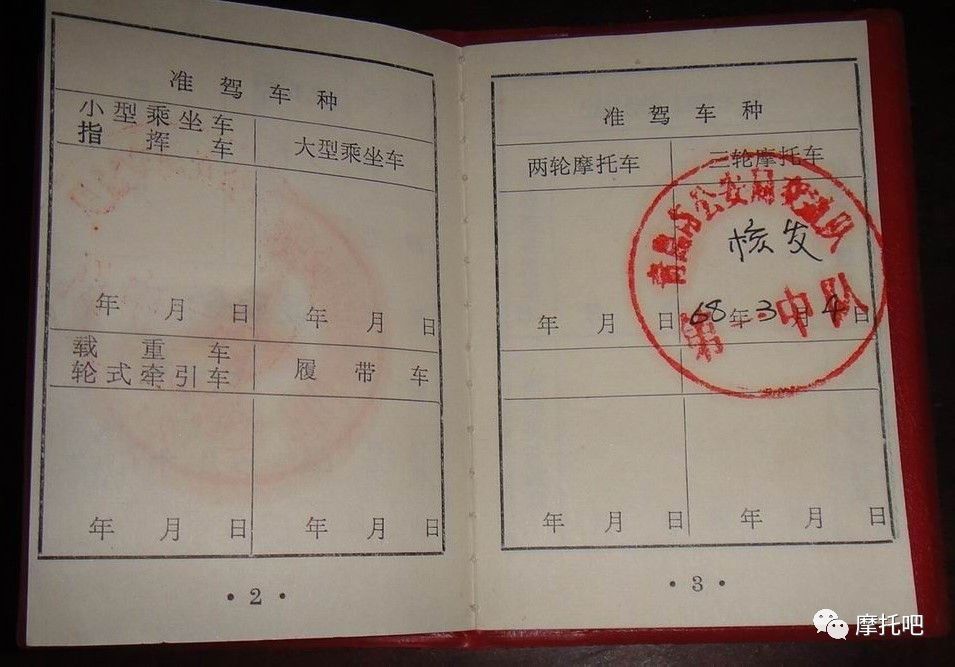 准驾车种
小型乘坐车
指挥车
大型乘坐车
年月日
年月日
载重车
轮式牵引车
履带车
年月日
年月日
·2·
准驾车种
两轮摩托车
三轮摩托车
市公安局交通队
核发
年月日
68年3月4日
第中队
年月日
年月日
·3·
摩托吧